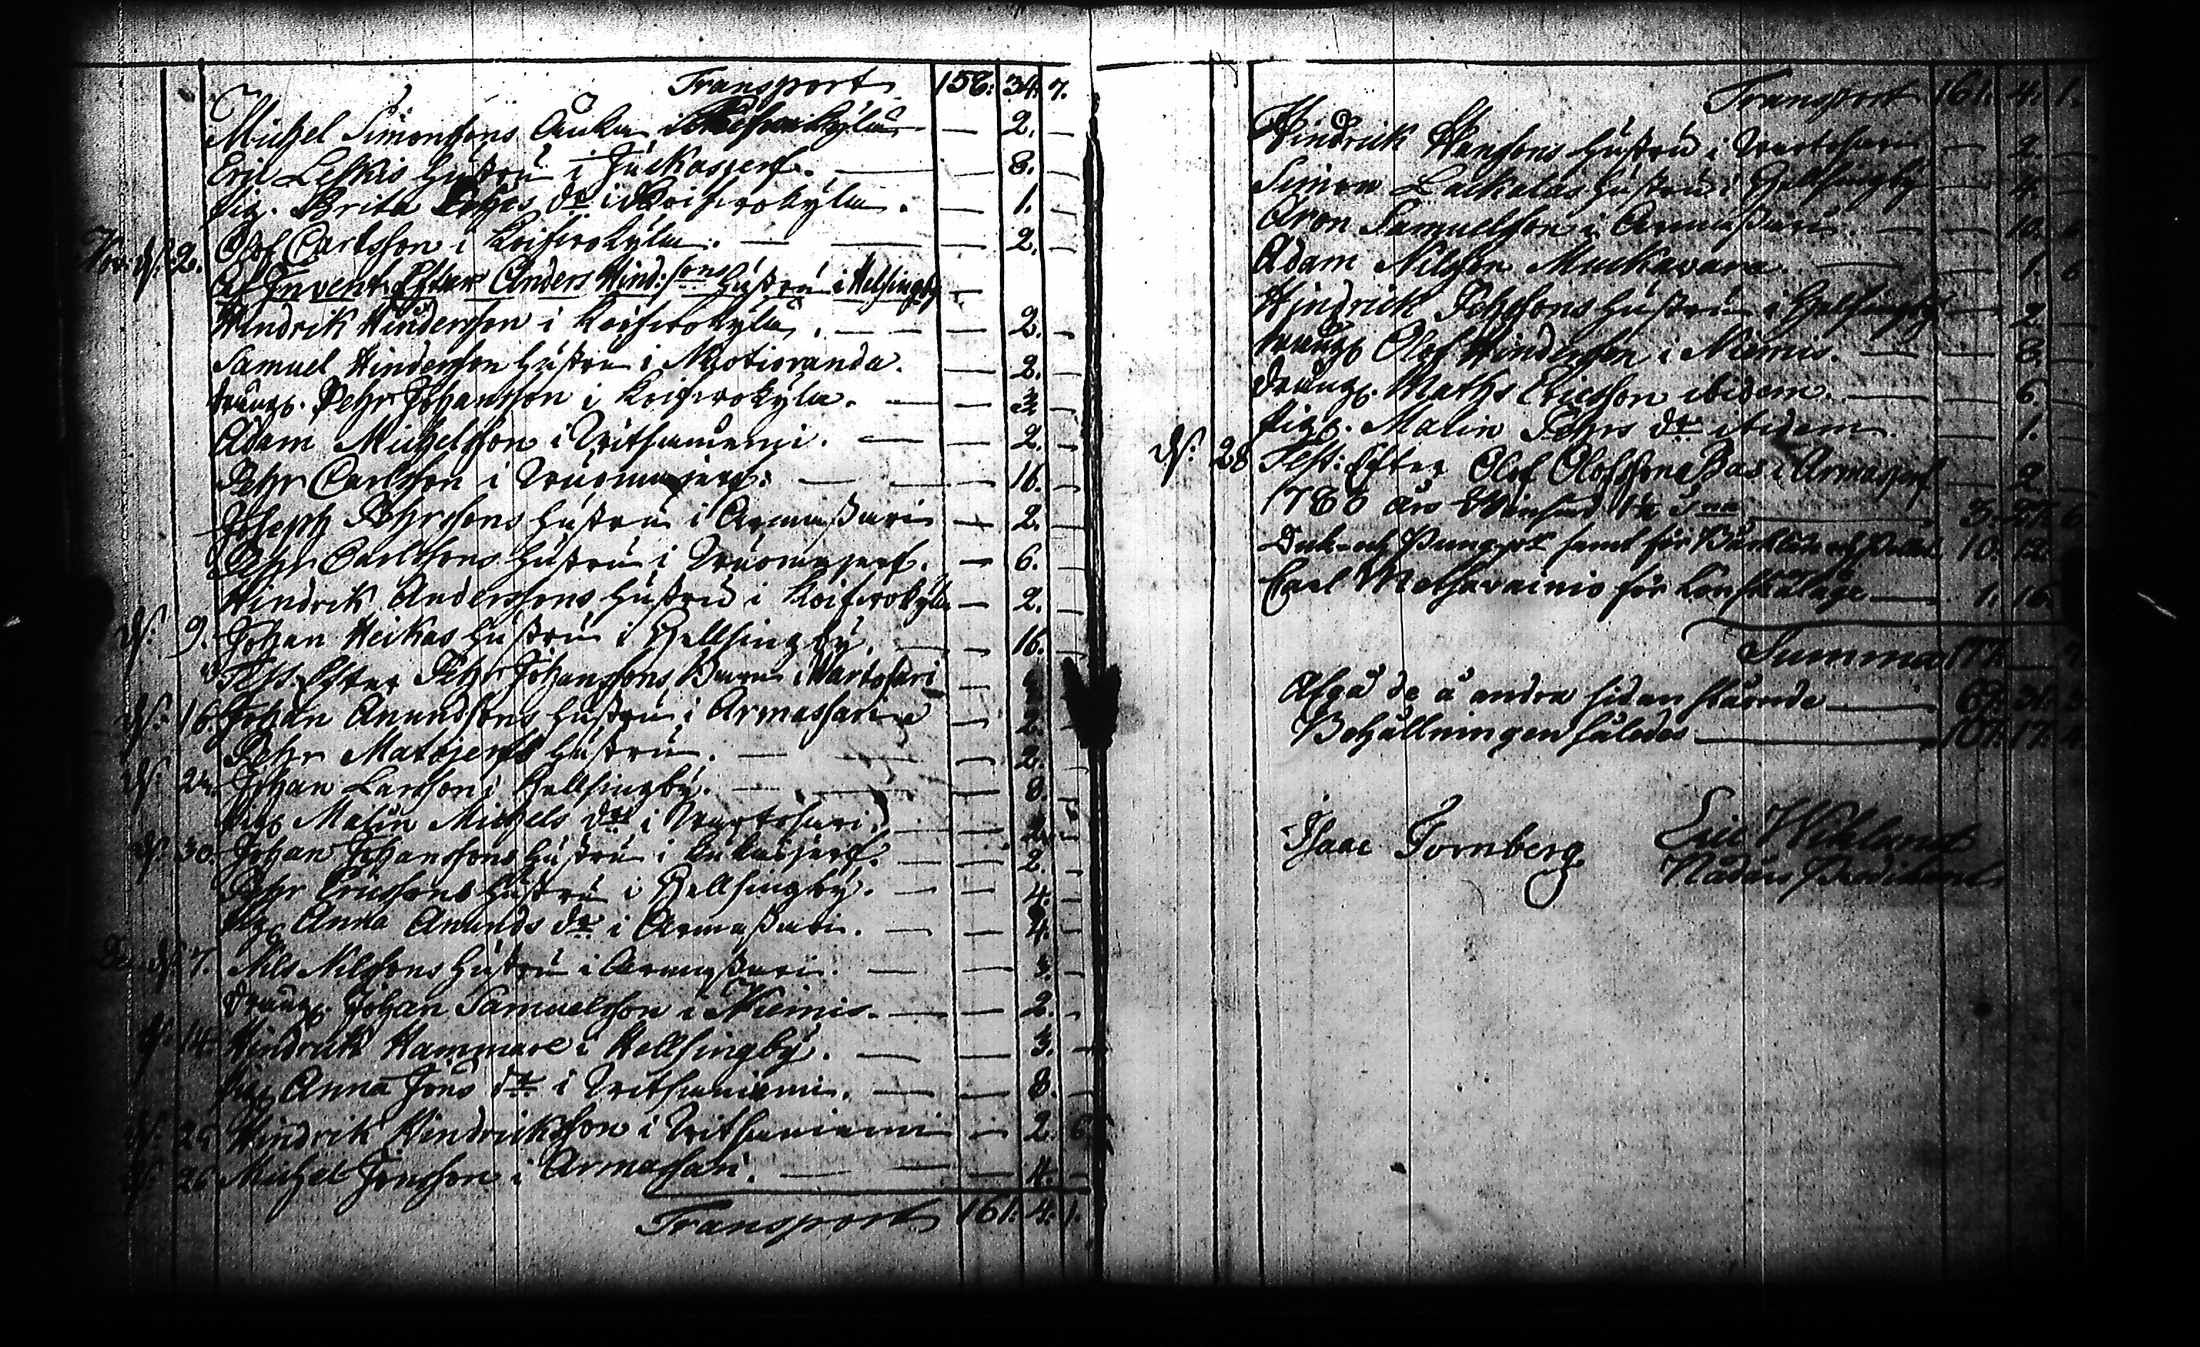 Transport 158: 34. 7.
Michel Simonssons Änka i Koifwokÿlä — 2. —
Eric Leskis hustru i Juckasjerf. — 8. —
pig. Brita dr i Koifwokÿlä. — 1. —
Nov. d. 2. Olof Carlsson i Koifwokÿla. — 2. —
af Invent. Efter Anders Hind:sons hustru i Helsingby —
Hindrik Hindersson i Koifwokÿla. — 2. —
Samuel Hindersson hustru i Niotioranda. — 2. —
dräng. Pehr Johansson i Koifwokÿla. — 3. —
Adam Michelsson i Vitsaniemi. — 2. —
Pehr Carlsson i Vuomajerf. — 16. —
Joseph Pehrssons hustru i Armassari — 2. —
Pehr Carlssons hustru i Vuomajerf. — 6. —
Hindrik Anderssons hustru i Koifwokÿla — 2. —
d. 9. Johan Heikas hustru i Hellsingbÿ. — 16. —
Test: Efter Pehr Johanssons Barn i Wartosari —
d. 16. Johan Anundssons hustru i Armassari — 2. —
Pehr Matojerfs hustru. — 2. —
d. 24. Johan Larsson i Hellsingbÿ. — 8. —
pig. Malin Michels dr i Wartosari. — 2. —
d. 30. Johan Johanssons hustru i — 2. —
Pehr Ericssons hustru i Hellsingbÿ. — 4. —
pig. Anna Anunds dr i Armassari. — 4. —
De. d. 7. Nils Nilssons hustru i Armassari. — 3. —
dräng. Johan Samuelsson i Niemis. — 2. —
d. 14. Hindrik Hammare i Hellsingbÿ. — 3. —
pig. Anna Jöns dr i Vitsaniemi. — 8. —
d. 25 Hindrik Hendricksson i Vitsaniemi — 2. 6
d. 26 Michel Jonsson i Armassari. — 4. —
Transport 161. 4. 1.
Transport 161. 4. 1.
Hindrick Hanssons hustru i Wartosari — 2. —
Simon Lackalas hustru i Hellsingbÿ — 4. —
Aron Samuelsson i Armassari — 10.
Adam Nilsson Muckavara — 1. 6
Hindrick Pehrssons hustru i Hellsingbÿ — 2. —
dräng. Olof Hindersson i Niemis. — 8. —
dräng. Maths Ericsson ibidem. — 6. —
pig. Malin Pehrs dr ibidem. — 1. —
d. 28 Test: Efter Olof Olofssons i Armasjerf — 2. —
års — 3. 27. 6
samt för 10. 12.
Carl Metsavainio för — 1. 16.
Summa 177. — 7.
Afgå de å andra sidan stående — 69. 31. 3
Behållningen således — 107. 17. 4.
Isaac Fornberg
Eric Wiklund
Nådårs Predikant